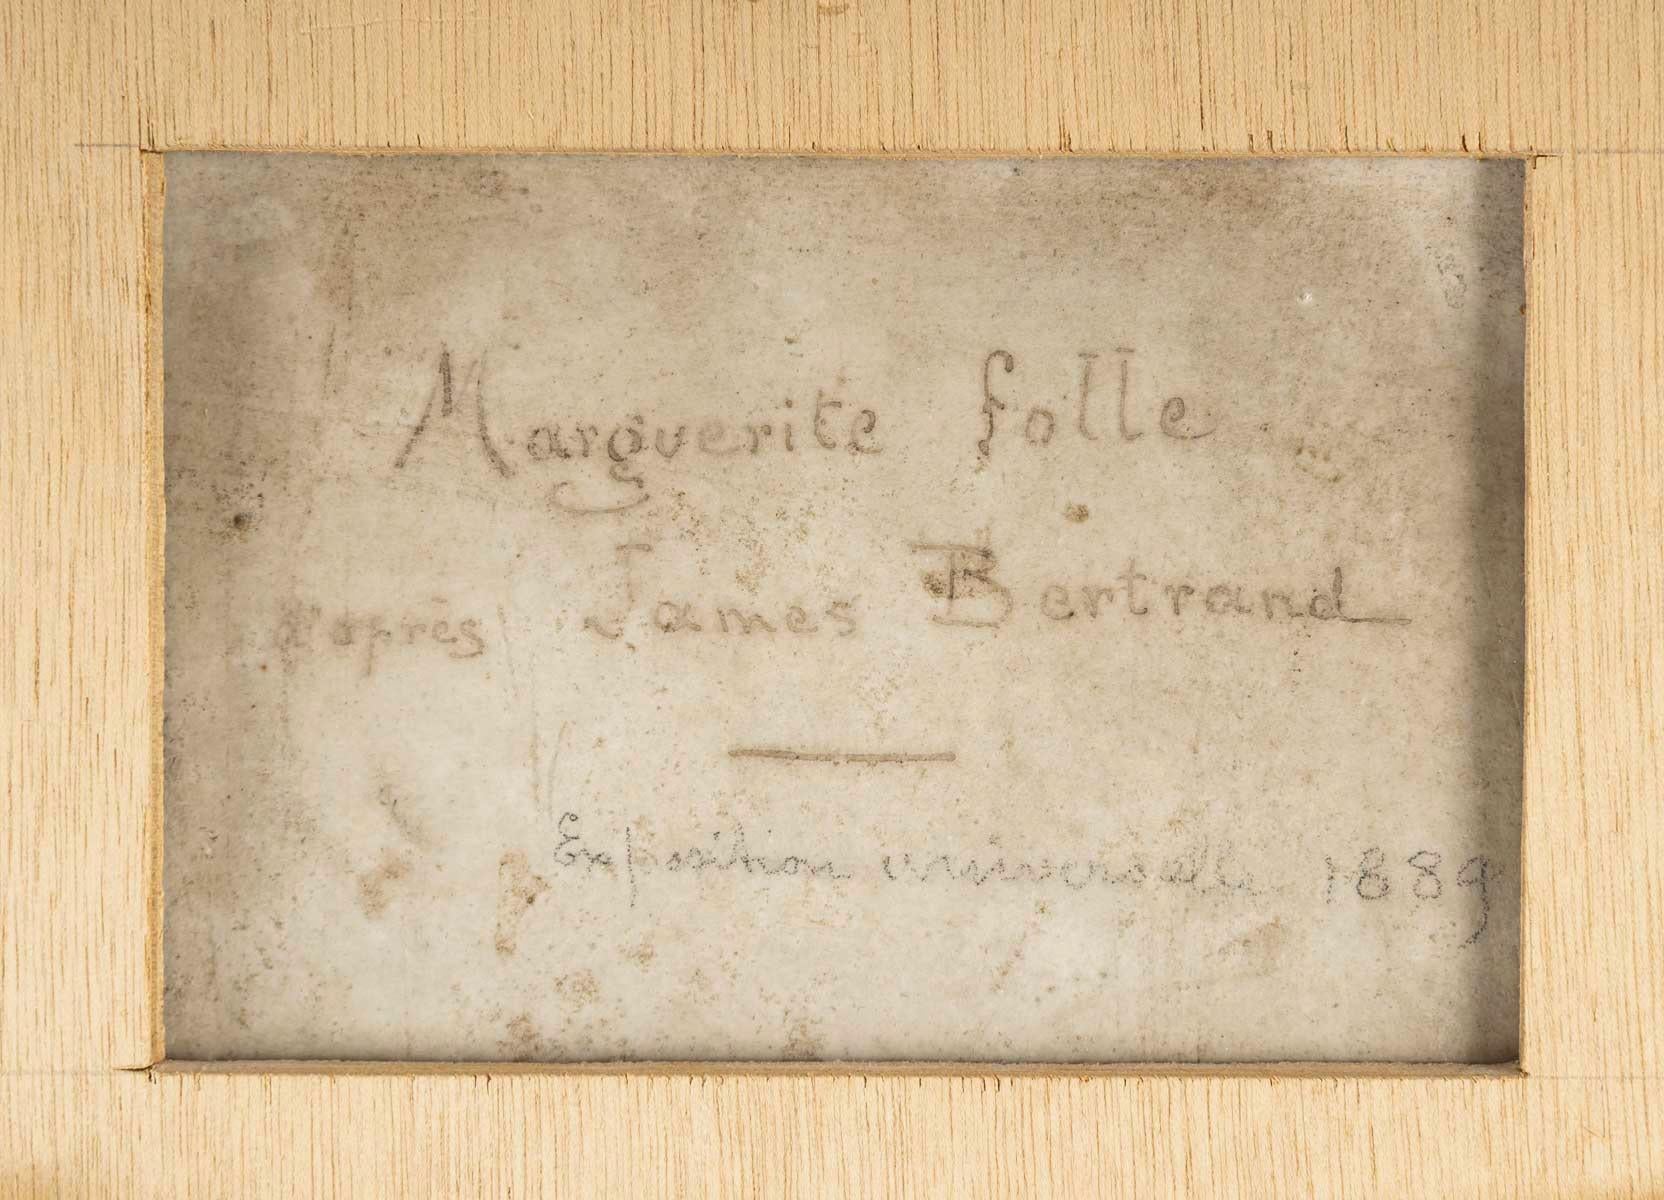 Marguerite folle
d'après James Bertrand
Exposition universelle 1889